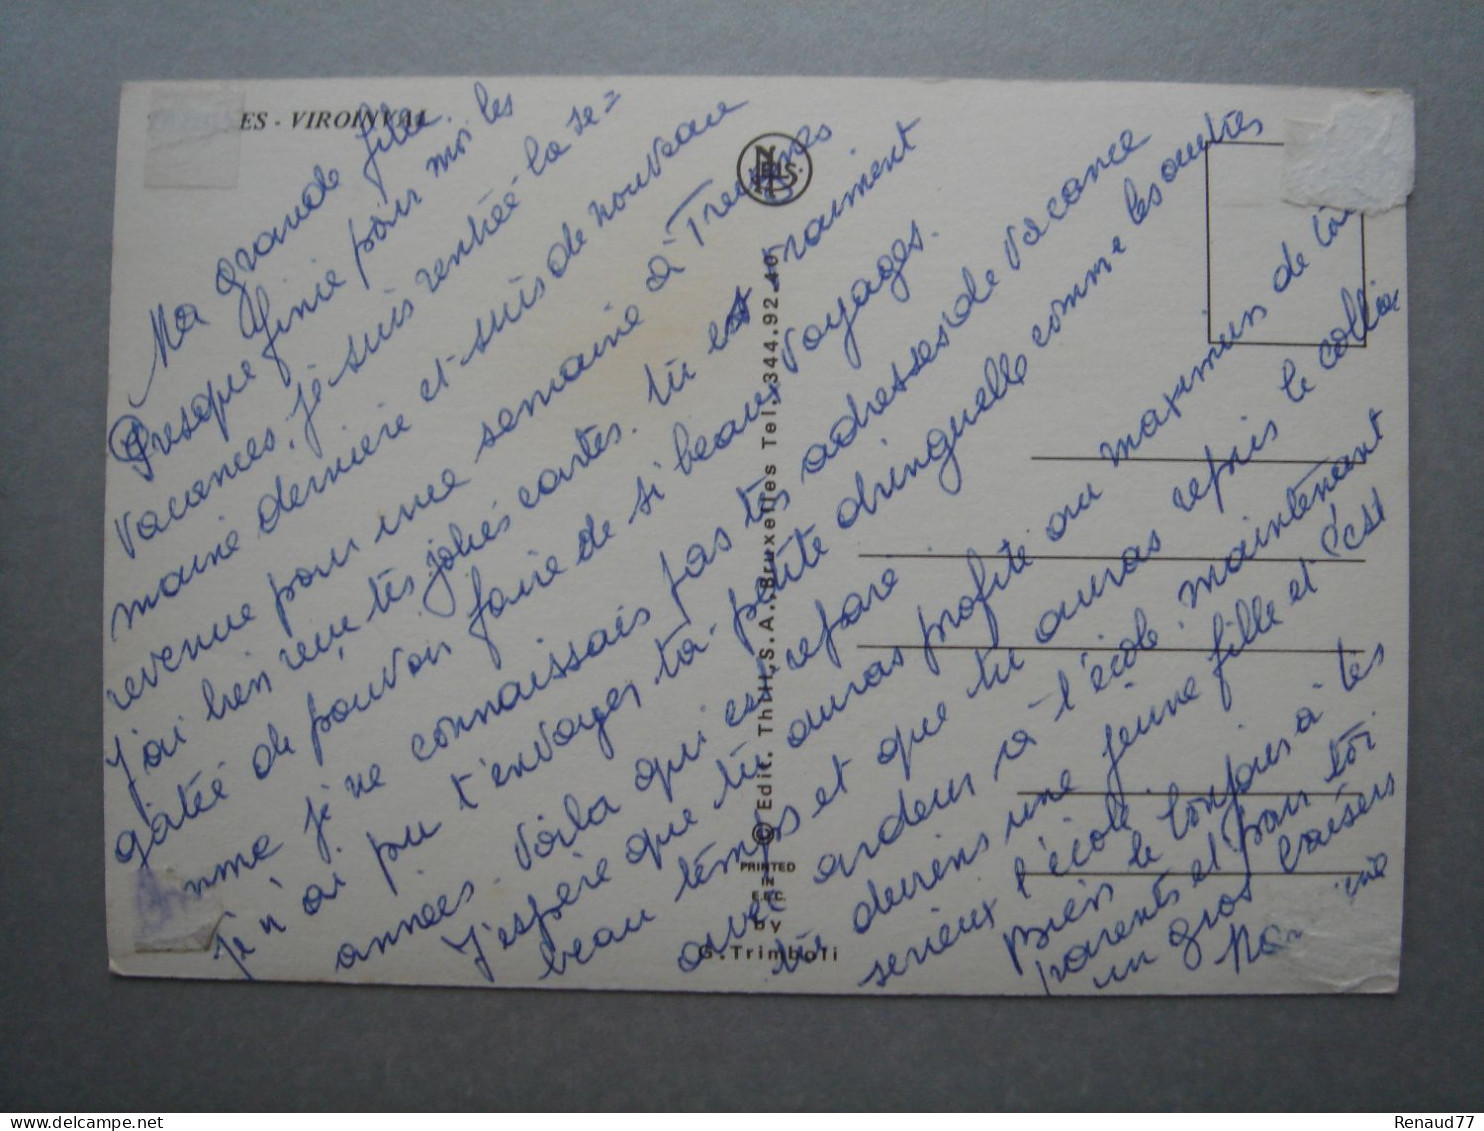 ES - VIROINVAL
Ma grande fille.
Presque finie pour moi les
vacances. je suis rentrée la se=
maine derniere et suis de nouveau
revenue pour une semaine à Treignes
J'ai bien reçu tes jolies cartes. tu es vraiment
gâtée de pouvoir faire de si beaux voyages.
comme je ne connaissais pas tes adresses de vacance
je n'ai pu t'envoyer ta petite dringuelle comme les autres
années. Voila qui est réparé
J'espère que tu auras profité au maximum de ton
beau temps et que tu auras repris le collier
avec ardeur à l'école. maintenant
tu deviens une jeune fille et c'est
serieux l'école
Bien le bonjour à tes
parents et pour toi
un gros baisers
© Edit. Thill, S.A. Bruxelles Tel. 344.92.40
PRINTED
IN
E.E.C.
by
G. Trimboli
Renaud77